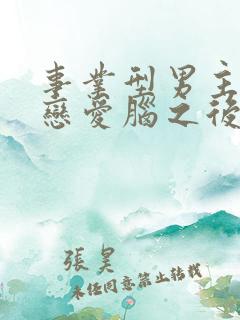 事業型男主
戀愛腦之後
張昊
未經同意禁止轉載